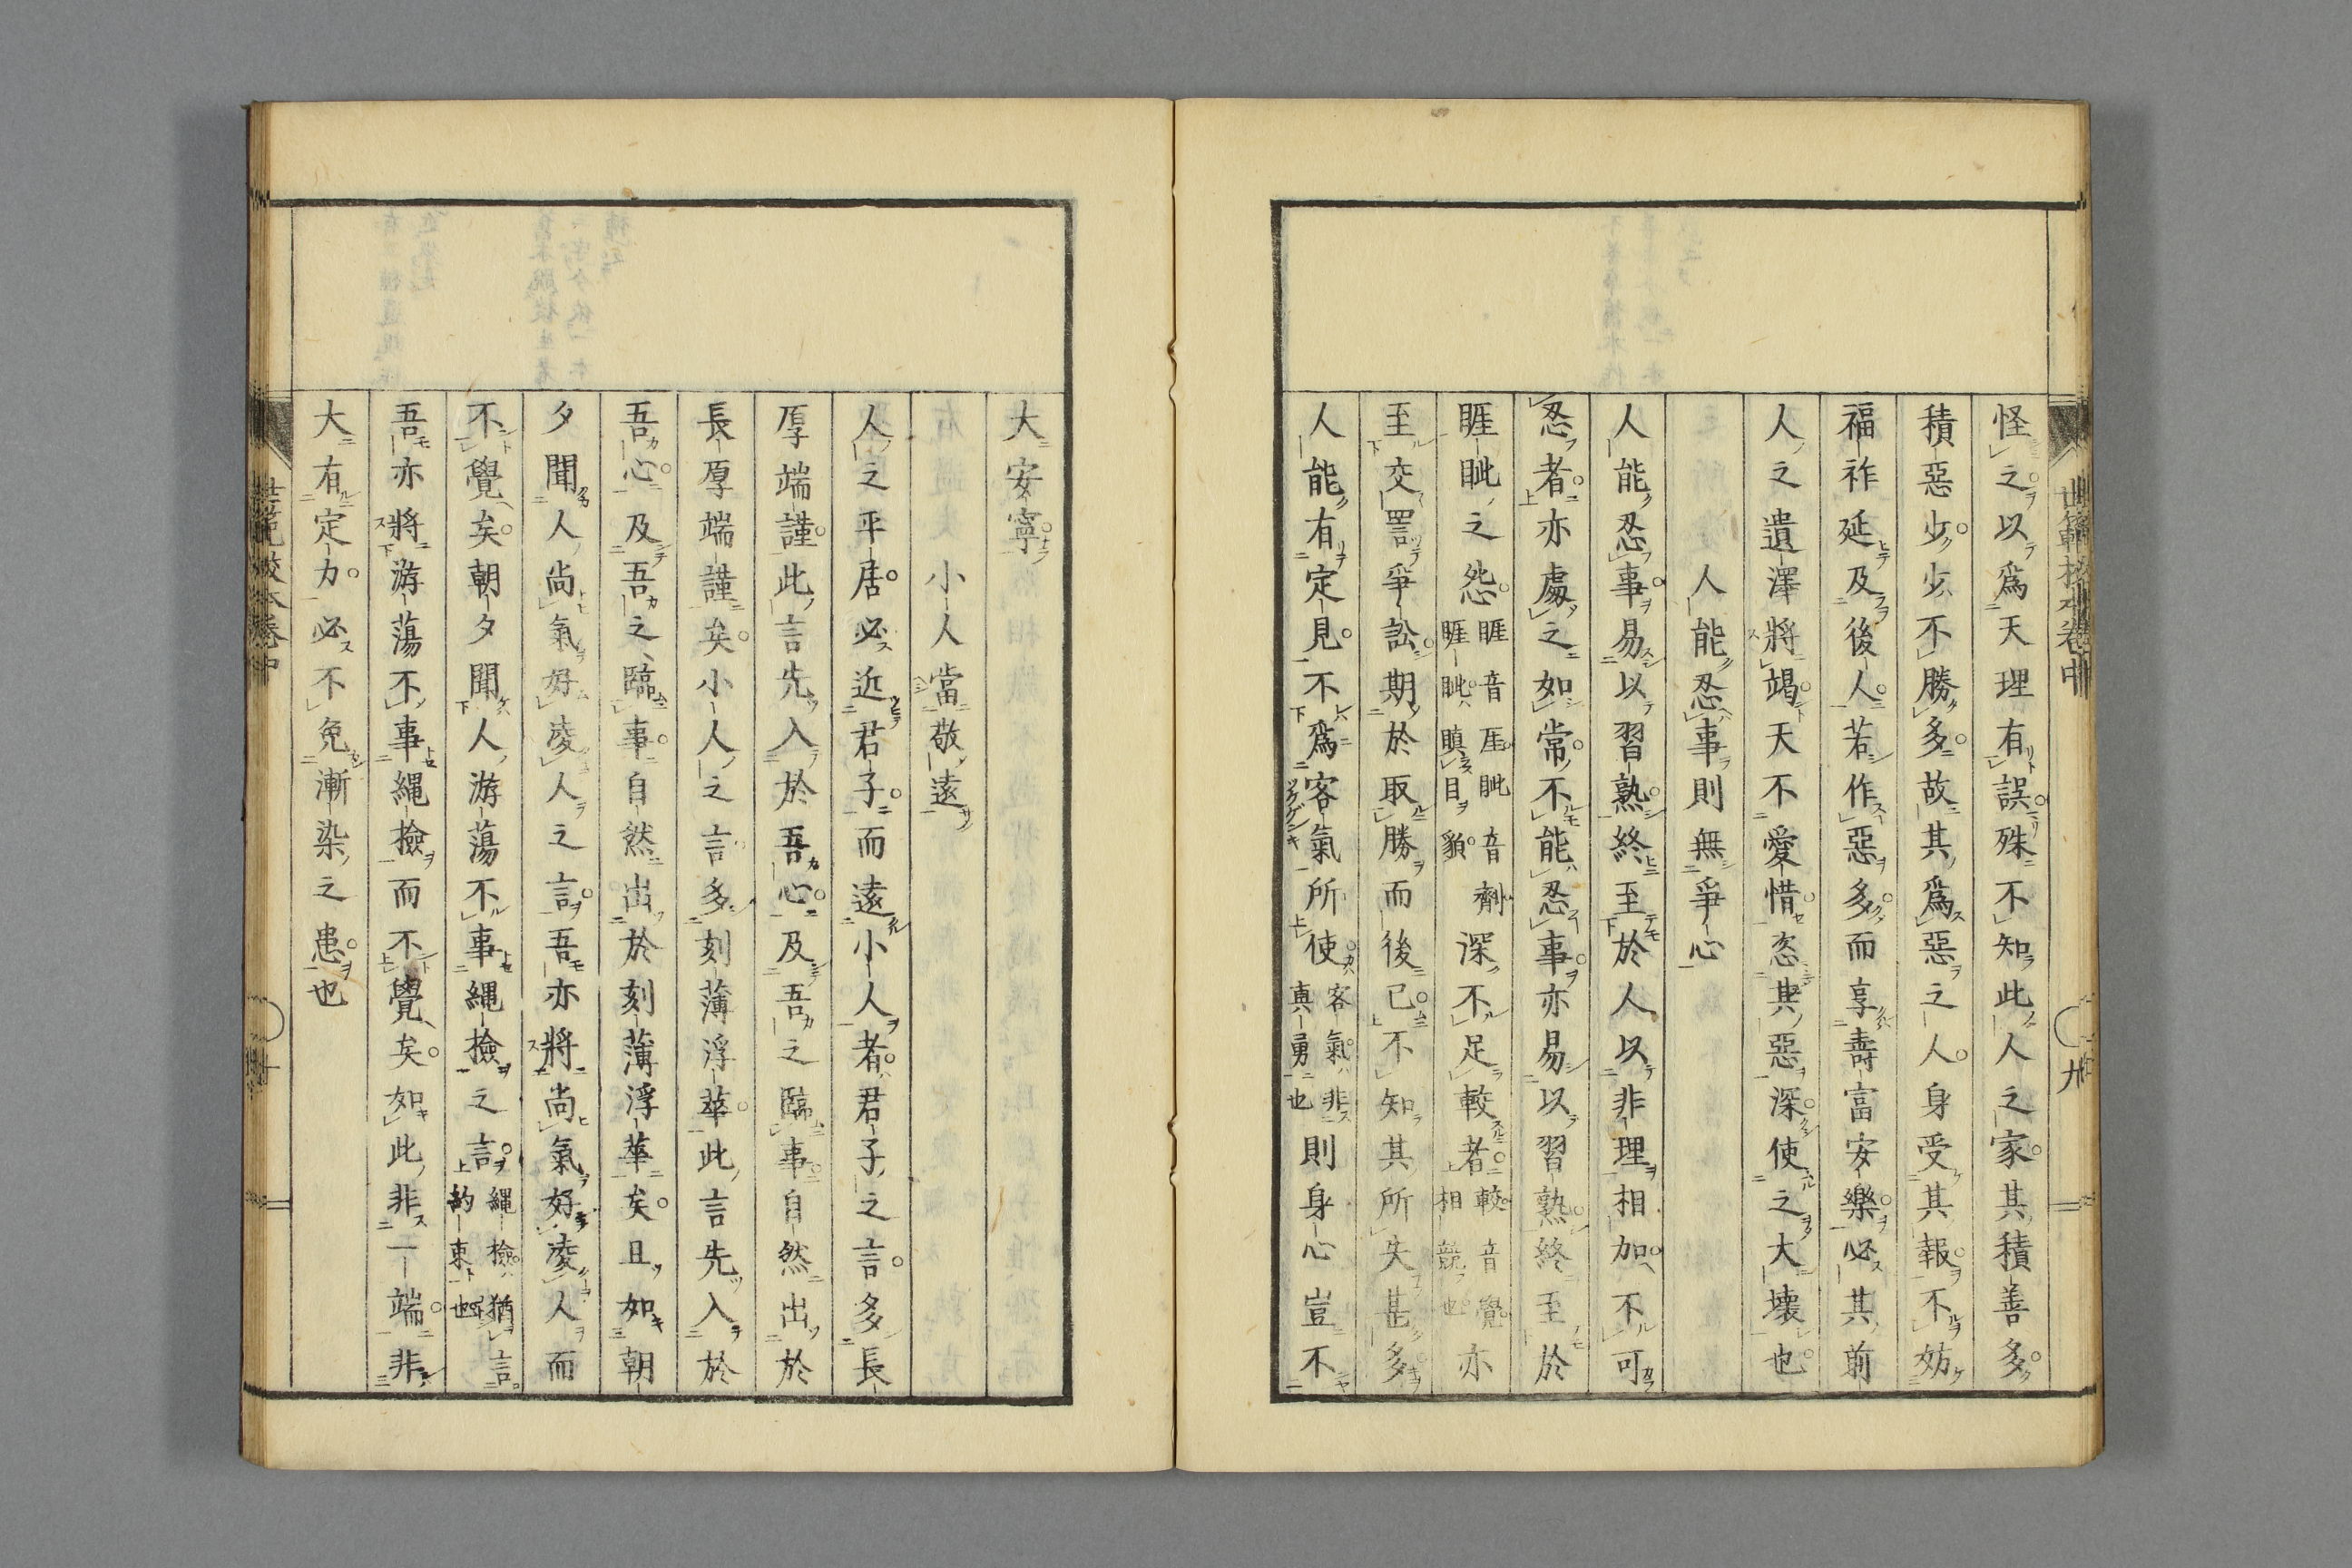 世範校本卷中
九
怪之以爲天理有誤殊不知此人之家其積善多
積惡少少不勝多故其爲惡之人身受其報不妨
福祚延及後人若作惡多而享壽富安樂必其前
人之遺澤將竭天不愛惜恣其惡深使之大壞也
人能忍事則無爭心
人能忍事易以習熟終至於人以非理相加不可
忍者亦處之如常不能忍事亦易以習熟終至於
睚眦之怨睚音厓眦音劑睚眦瞋目貌深不足較者較音覺相競也亦
至交詈爭訟期於取勝而後已不知其所失甚多
人能有定見不爲客氣所使客氣非眞勇也則身心豈不
大安寧
小人當敬遠
人之平居必近君子而遠小人者君子之言多長
厚端謹此言先入於吾心及吾之臨事自然出於
長厚端謹矣小人之言多刻薄浮華此言先入於
吾心及吾之臨事自然出於刻薄浮華矣且如朝
夕聞人尚氣好凌人之言吾亦將尚氣好凌人而
不覺矣朝夕聞人游蕩不事繩檢之言繩檢猶言約束也
吾亦將游蕩不事繩檢而不覺矣如此非一端非
大有定力必不免漸染之患也
世範校本卷中
十